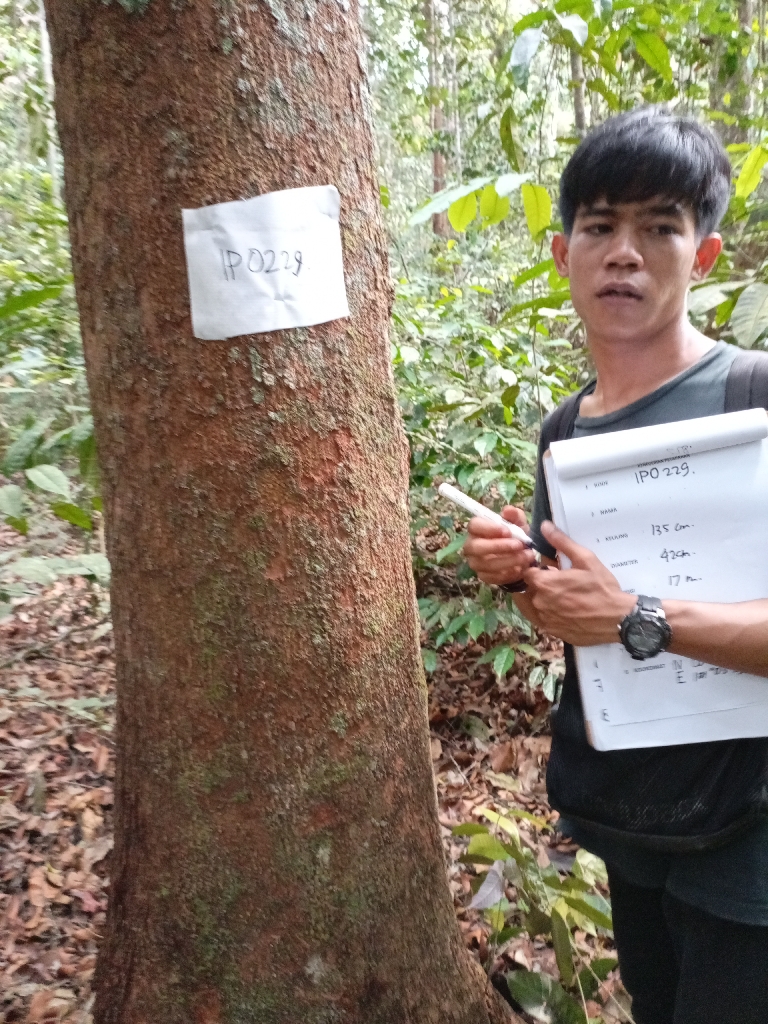 IPO229.
1 KODE IPO229.
2 NAMA
3 KELILING 135 cm.
DIAMETER 42cm
17 m.
KOORDINAT N
E